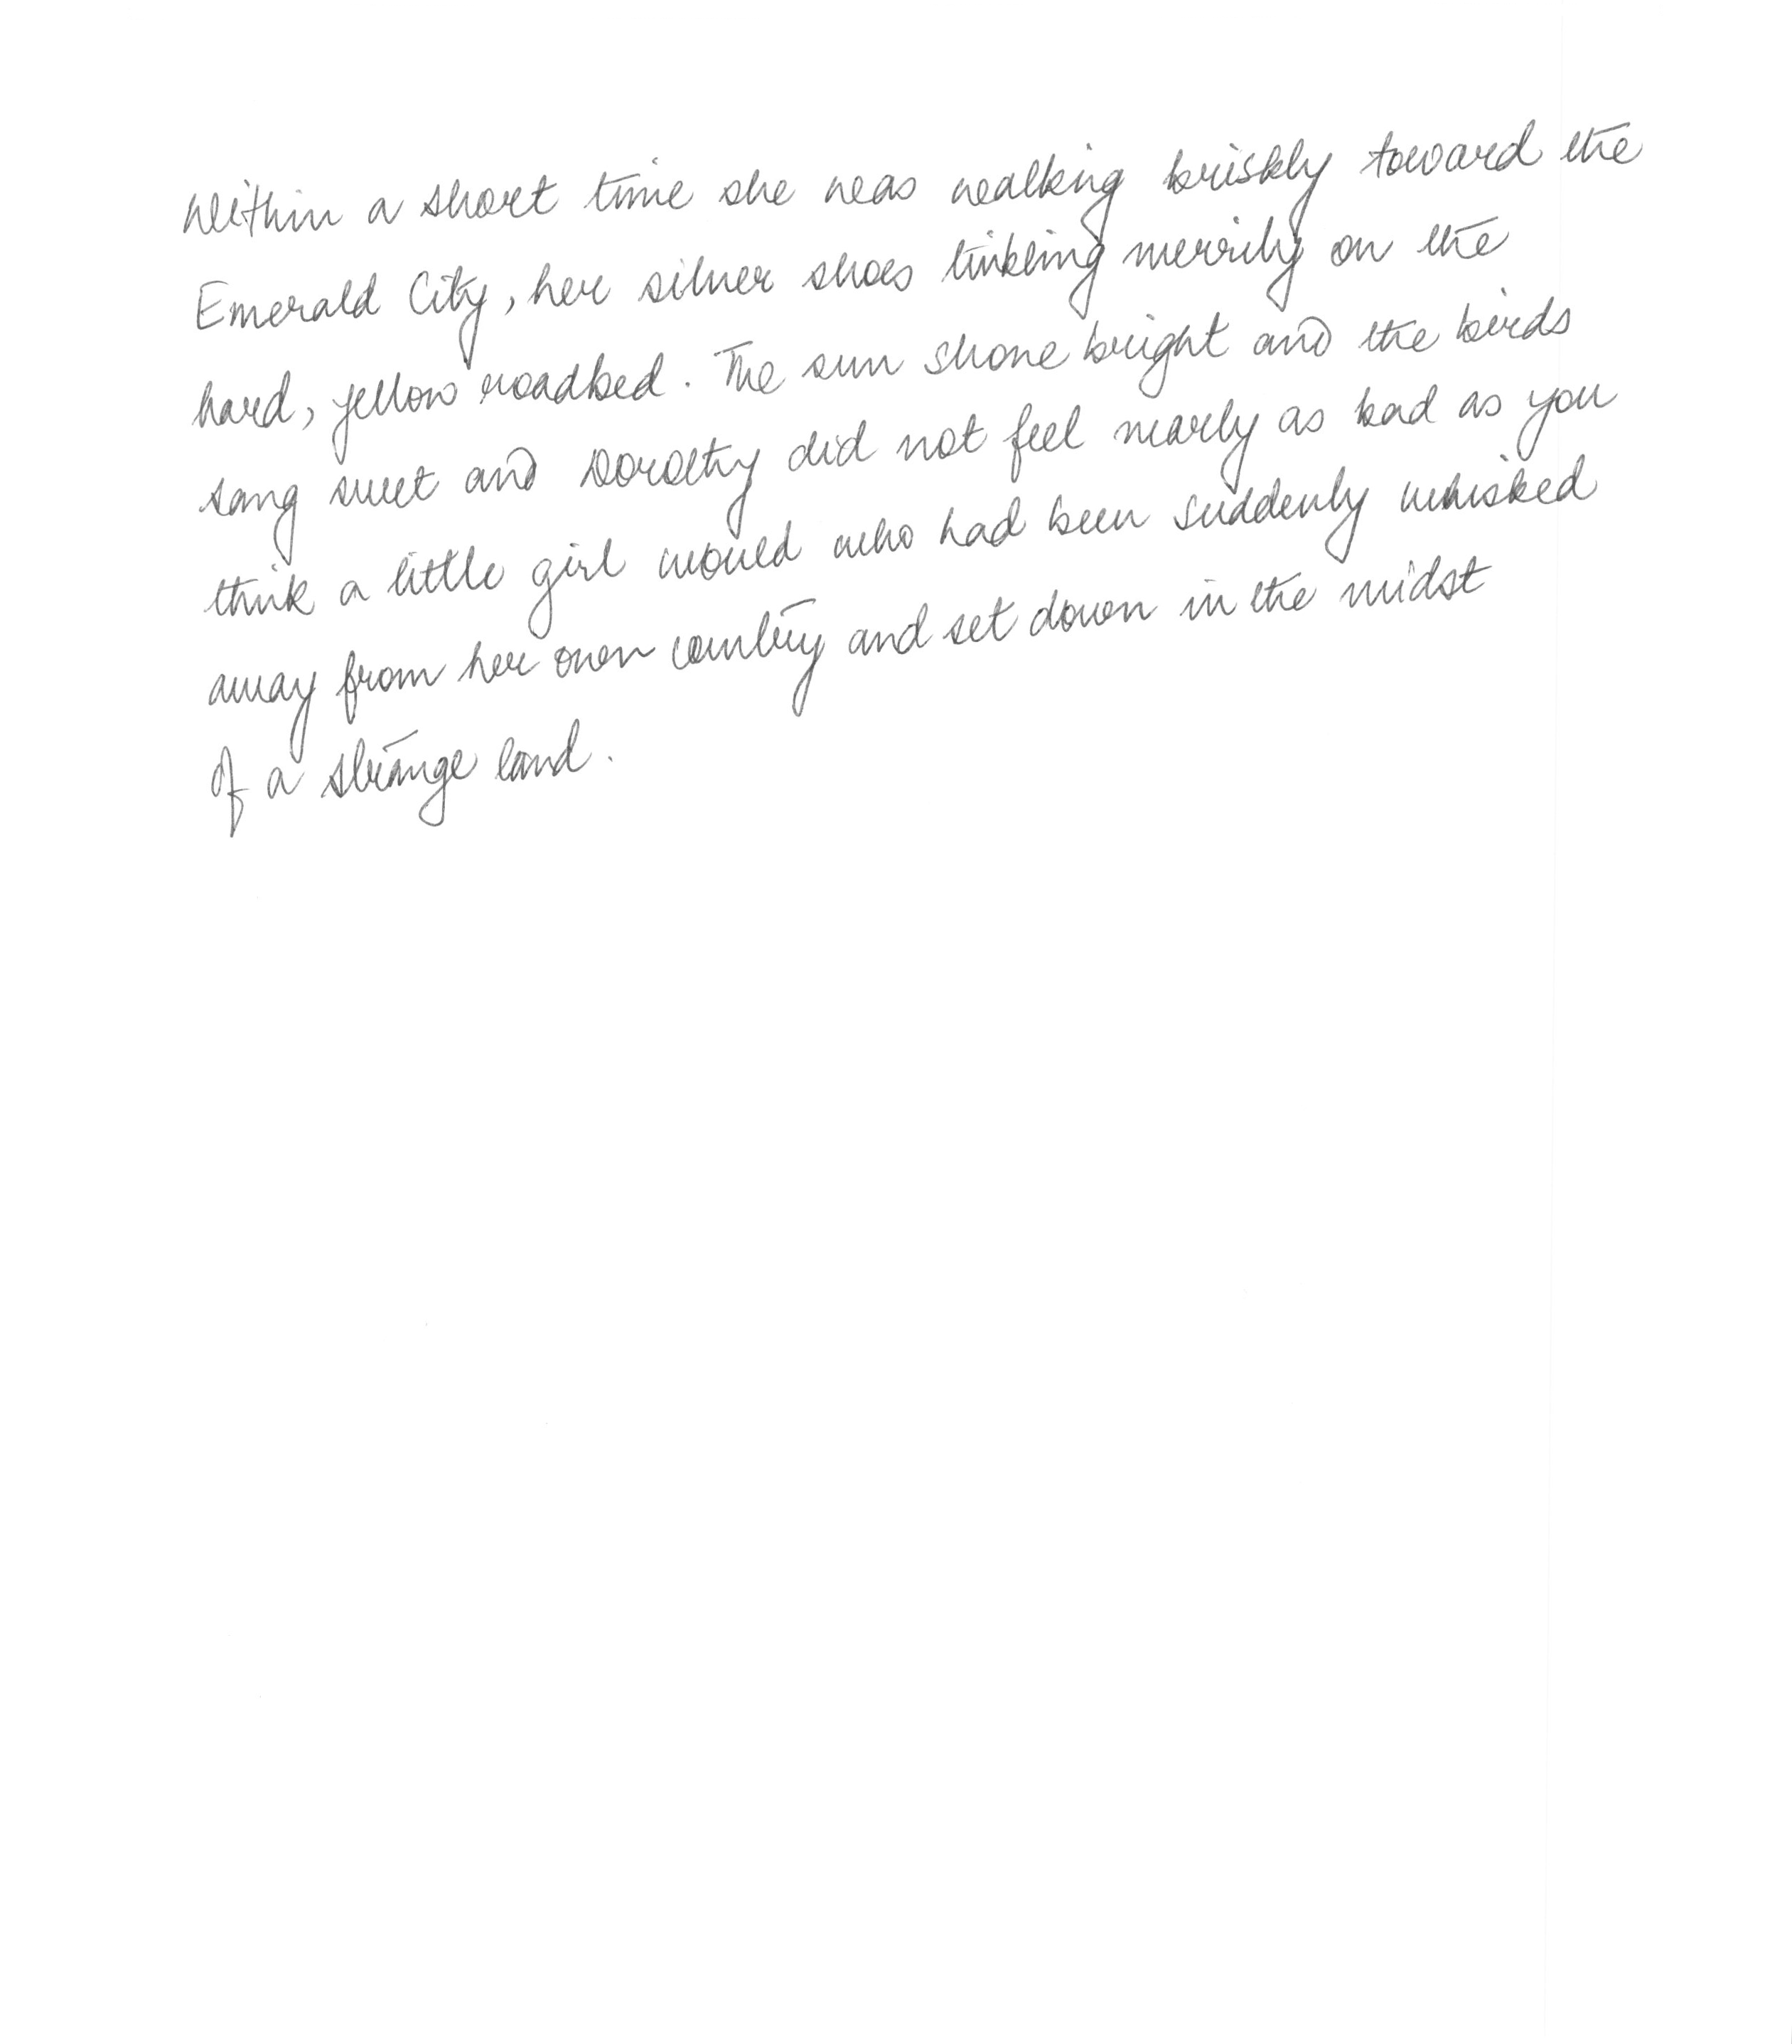 Within a short time she was walking briskly toward the
Emerald City, her silver shoes tinkling merrily on the
hard, yellow roadbed. The sun shone bright and the birds
sang sweet and Dorothy did not feel nearly as bad as you
think a little girl would who had been suddenly whisked
away from her own country and set down in the midst
of a strange land.